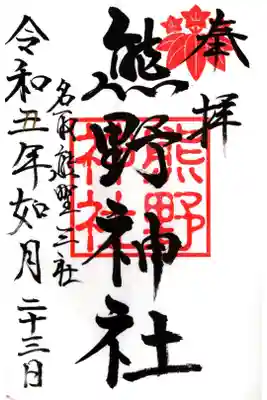 奉拝
熊野神社
熊野
神社
名取熊野三社
令和五年如月二十三日